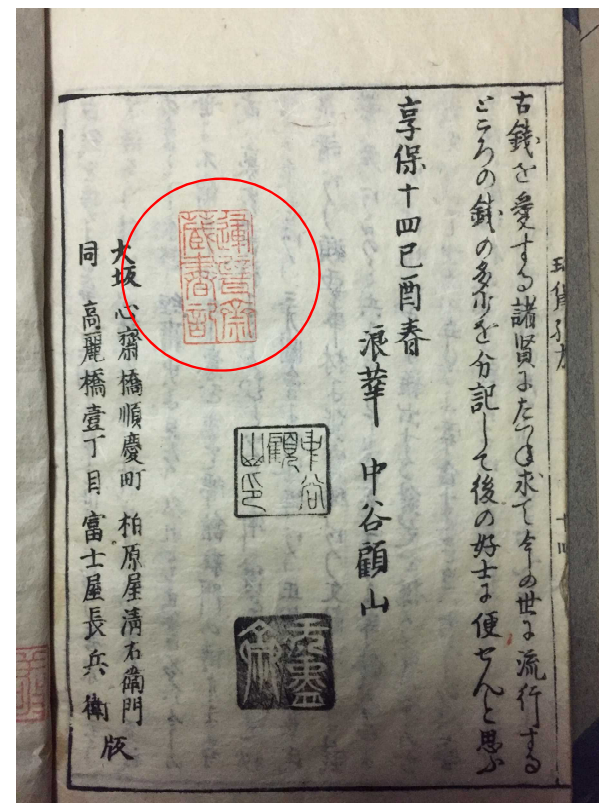 古錢を愛する諸賢にたつね求て今の世に流行する
ところの錢の多少を分記して後の好士に便せんと思ふ
享保十四己酉春
浪華 中谷顧山
中谷
顧
山印
藏書記
大坂 心齋橋順慶町 柏原屋清右衛門
同 高麗橋壹丁目 富士屋長兵衛 版